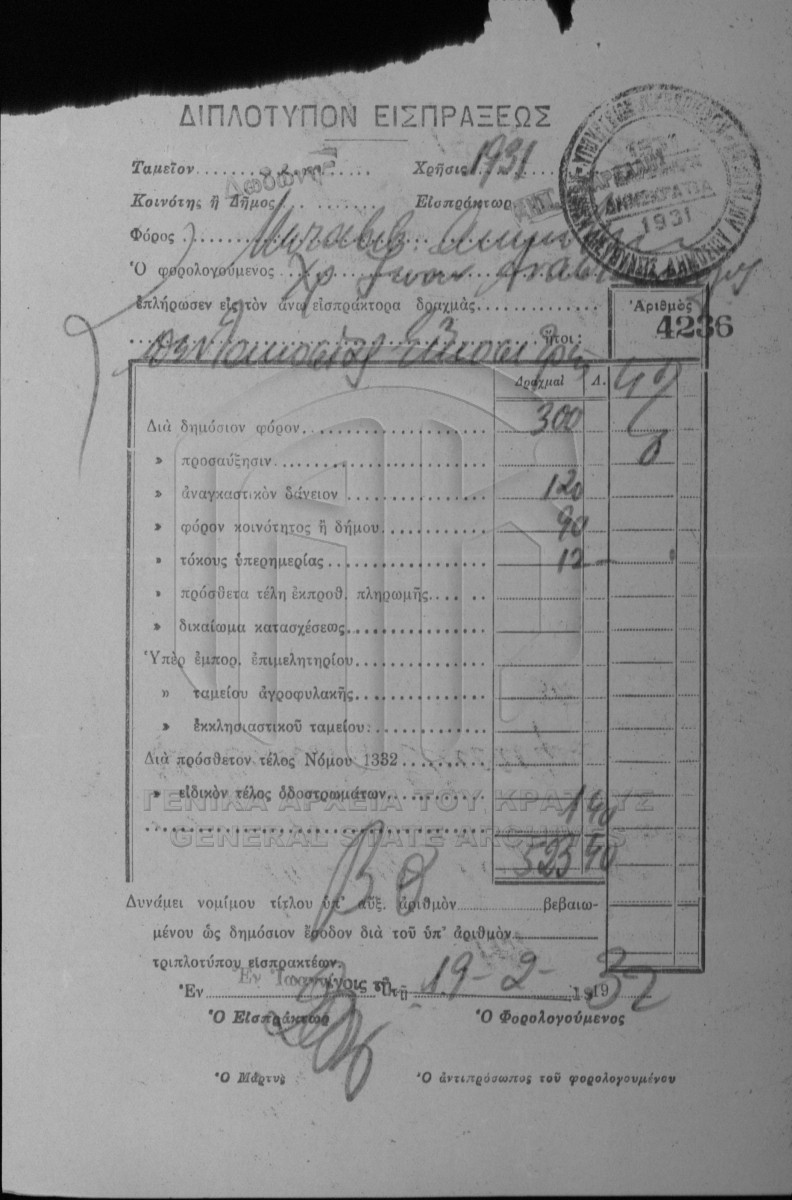 ΔΙΠΛΟΤΥΠΟΝ ΕΙΣΠΡΑΞΕΩΣ
Ταμεῖον Χρῆσις 1931
Δωδώνης
Κοινότης ἢ Δῆμος Εἰσπράκτωρ
ΔΗΜΟΚΡΑΤΙΑ
1931
Φόρος
Ὁ φορολογούμενος Χρ
ἐπλήρωσεν εἰς τὸν ἄνω εἰσπράκτορα δραχμὰς
Ἀριθμὸς
4236
πεντακοσίας εἴκοσι τρεῖς ἤτοι:
Δραχμαὶ Λ.
Διὰ δημόσιον φόρον 300
» προσαύξησιν
» ἀναγκαστικὸν δάνειον 120
» φόρον κοινότητος ἢ δήμου 90
» τόκους ὑπερημερίας 12
» πρόσθετα τέλη ἐκπροθ. πληρωμῆς
» δικαίωμα κατασχέσεως
Ὑπὲρ ἐμπορ. ἐπιμελητηρίου
» ταμείου ἀγροφυλακῆς
» ἐκκλησιαστικοῦ ταμείου
Διὰ πρόσθετον τέλος Νόμου 1332
» εἰδικὸν τέλος ὁδοστρωμάτων
ΓΕΝΙΚΑ ΑΡΧΕΙΑ ΤΟΥ ΚΡΑΤΟΥΣ
1 40
GENERAL STATE ARCHIVES
523 40
Δυνάμει νομίμου τίτλου ὑπ' αὔξ. ἀριθμὸν βεβαιω-
μένου ὡς δημόσιον ἔσοδον διὰ τοῦ ὑπ' ἀριθμὸν
τριπλοτύπου εἰσπρακτέων.
Ἐν Ἰωαννίνοις τῇ
Ἐν τῇ 19-2-1932
Ὁ Εἰσπράκτωρ Ὁ Φορολογούμενος
Ὁ Μάρτυς Ὁ ἀντιπρόσωπος τοῦ φορολογουμένου